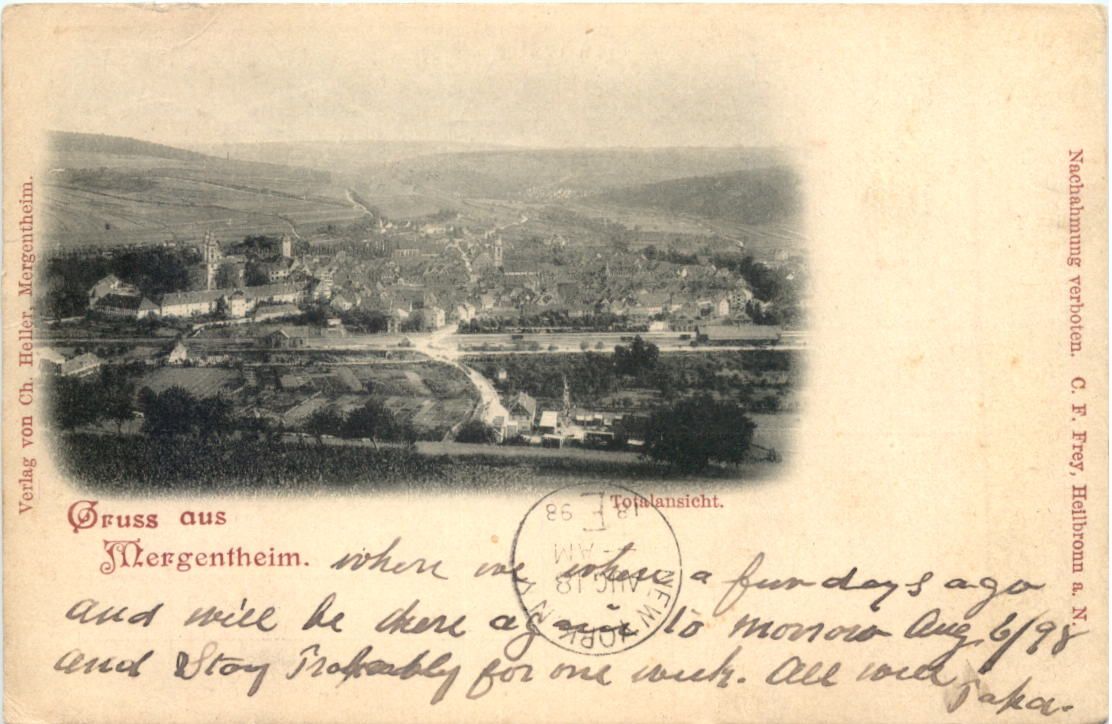 Verlag von Ch. Heller, Mergentheim.
Nachahmung verboten. C. F. Frey, Heilbronn a. N.
Totalansicht.
Gruss aus
Mergentheim.
where we where a fun days ago
and will be there again to morrow Aug 6/98
and Stay Probably for one week. All well
Papa.
NEW YORK, N.Y.
AUG 18
AM
98
E